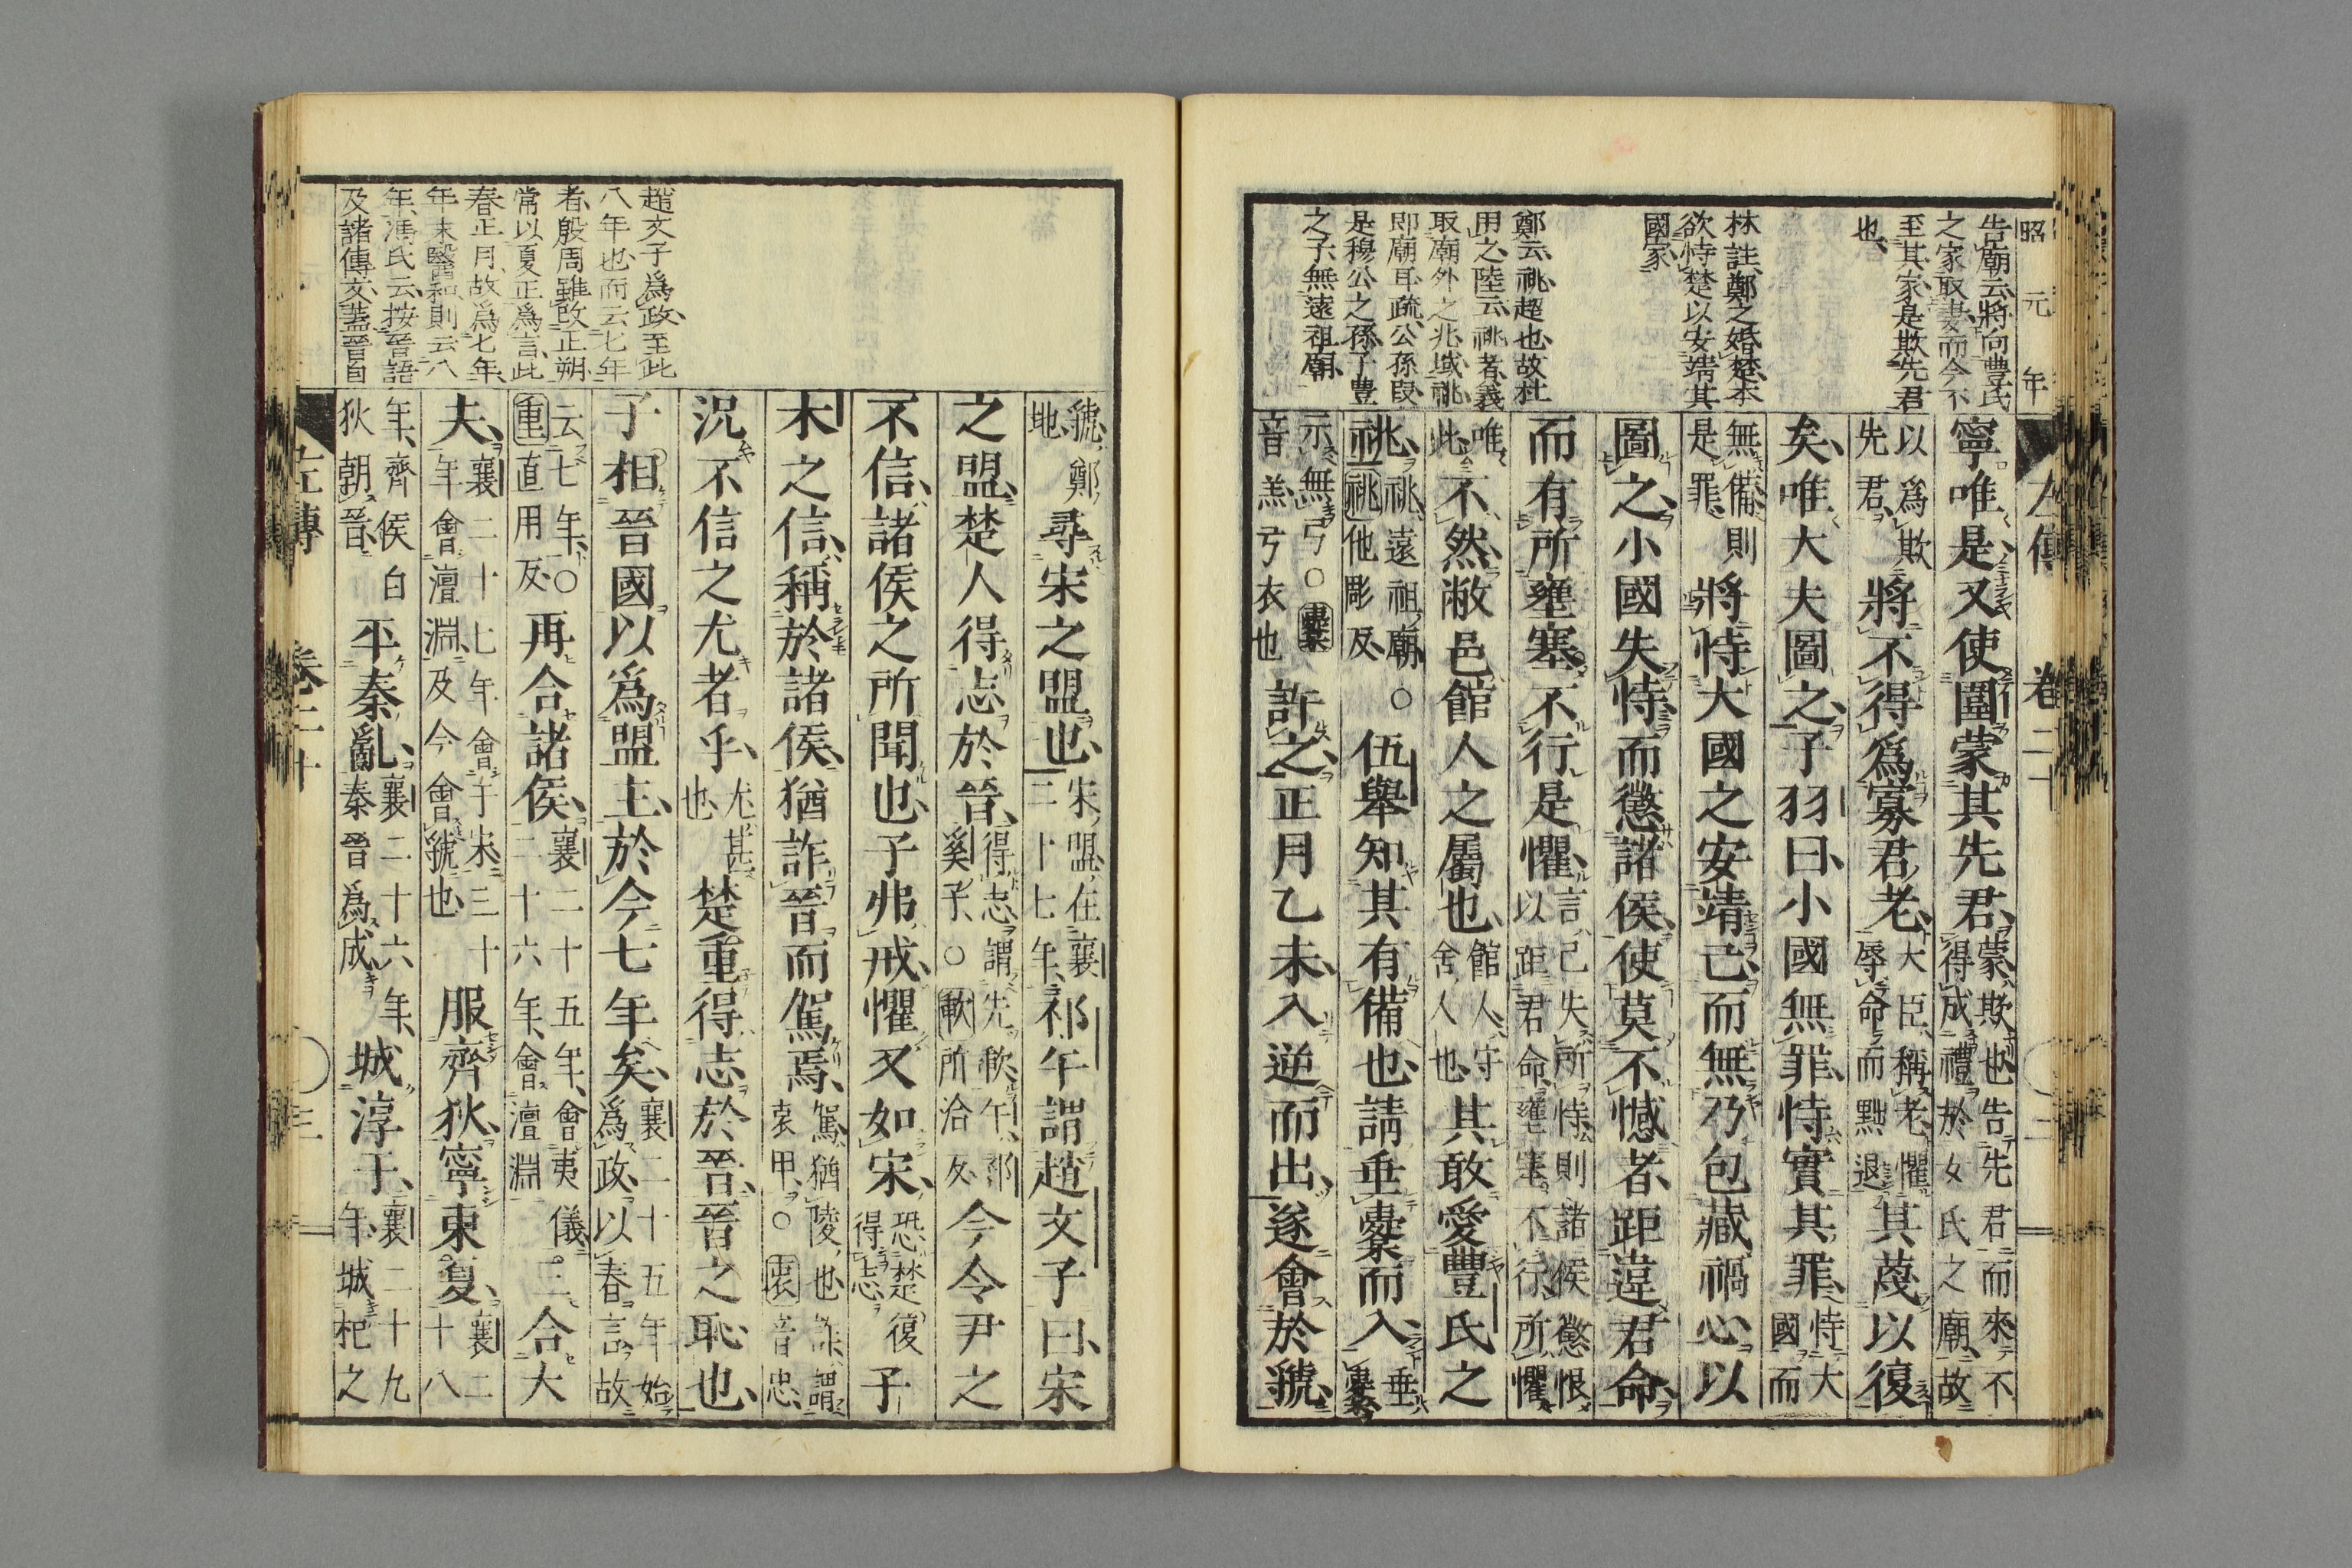 昭元年
左傳 卷二十 二
告廟云將向豐氏
之家取妻而今不
至其家是欺先君
也
林註鄭之婚楚本
欲恃楚以安靖其
國家
鄭云祧超也故杜
用之陸云祧者義
取廟外之兆域祧
即廟耳疏公孫段
是穆公之孫子豐
之子無遠祖廟
寧唯是又使圍蒙其先君蒙欺也告先君而來不
得成禮於女氏之廟故
以爲欺
先君將不得爲寡君老大臣稱老懼
辱命而黜退其蔑以復
矣唯大夫圖之子羽曰小國無罪恃實其罪恃大
國而
無備則
是罪將恃大國之安靖己而無乃包藏禍心以
圖之小國失恃而懲諸侯使莫不憾者距違君命
而有所壅塞不行是懼言己失所恃則諸侯懲恨
以距君命壅塞不行所懼
唯
此不然敝邑館人之屬也館人守
舍人也其敢愛豐氏之
祧祧遠祖廟○
祧他彫反伍舉知其有備也請垂櫜而入垂櫜
示無弓○櫜
音羔弓衣也許之正月乙未入逆而出遂會於虢
虢鄭
地尋宋之盟也宋盟在襄
二十七年祁午謂趙文子曰宋
之盟楚人得志於晉得志謂先歃午祁
奚子○歃所洽反今令尹之
不信諸侯之所聞也子弗戒懼又如宋恐楚復
得志子
木之信稱於諸侯猶詐晉而駕焉駕猶陵也詐謂
衷甲○衷音忠
況不信之尤者乎尤甚
也楚重得志於晉晉之恥也
子相晉國以爲盟主於今七年矣襄二十五年始
爲政以春言故
云七年○
重直用反再合諸侯襄二十五年會夷儀
二十六年會澶淵三合大
夫襄二十七年會于宋三十
年會澶淵及今會虢也服齊狄寧東夏襄二
十八
年齊侯白
狄朝晉平秦亂襄二十六年
秦晉爲成城淳于襄二十九
年城杞之
趙文子爲政至此
八年也而云七年
者殷周雖改正朔
常以夏正爲言此
春正月故爲七年
年末醫和則云八
年馮氏云按晉語
及諸傳文蓋晉自
左傳 卷二十 三